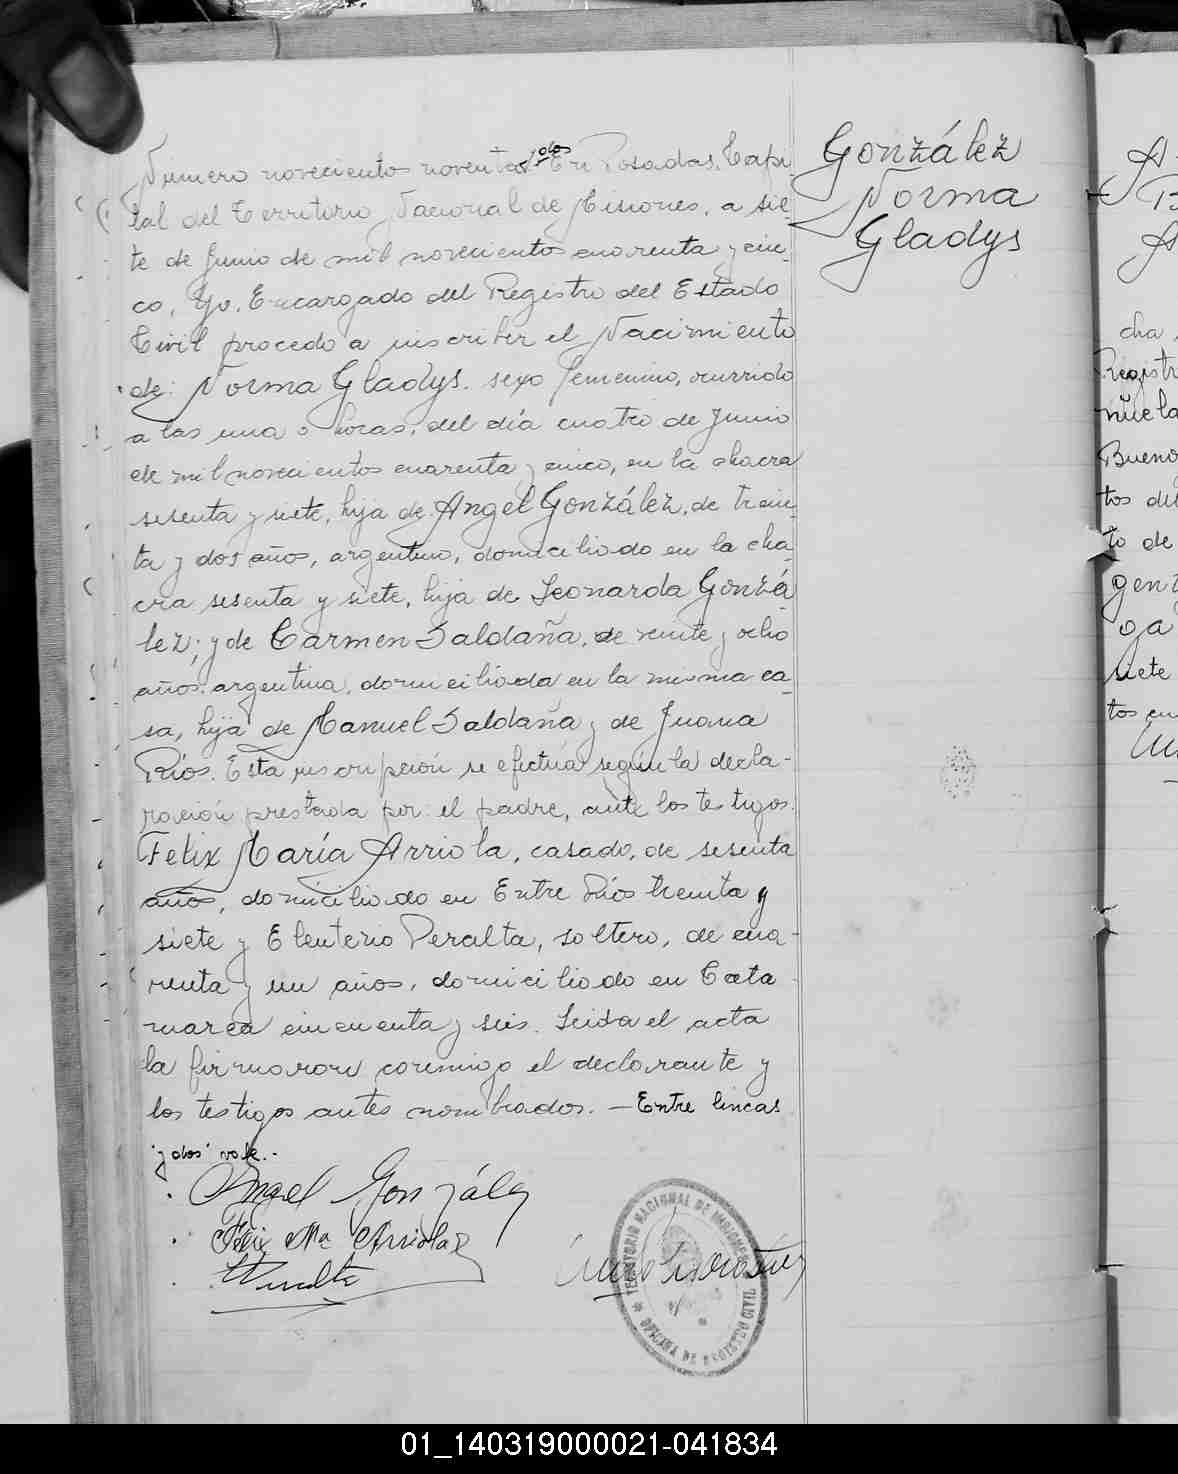 González
Norma
Gladys
Número novecientos noventa y dos En Posadas, Capi-
tal del Territorio Nacional de Misiones, a sie-
te de Junio de mil novecientos cuarenta y cin-
co, Yo, Encargado del Registro del Estado
Civil procedo a inscribir el Nacimiento
de: Norma Gladys. sexo femenino, ocurrido
a las una horas, del día cuatro de Junio
de mil novecientos cuarenta y cinco, en la chacra
sesenta y siete, hija de Angel González, de trein-
ta y dos años, argentino, domiciliado en la cha-
cra sesenta y siete, hija de Leonarda Gonzá-
lez; y de Carmen Saldaña, de veinte y ocho
años, argentina, domiciliada en la misma ca-
sa, hija de Manuel Saldaña y de Juana
Ríos. Esta inscripción se efectúa según la decla-
ración prestada por: el padre, ante los testigos
Felix María Arriola, casado, de sesenta
años, domiciliado en Entre Ríos treinta y
siete y Eleuterio Peralta, soltero, de cua-
renta y un años, domiciliado en Cata-
marca cincuenta y seis. Leida el acta
la firmaron conmigo el declarante y
los testigos antes nombrados. — Entre lineas
"y dos" vale.-
Angel González
Félix Ma Arriola
EPeralta
TERRITORIO NACIONAL DE MISIONES
OFICINA DE REGISTRO CIVIL
cha
Registr
nuela
Bueno
tos de
to de
gent
ga
siete
tos cu
01_140319000021-041834